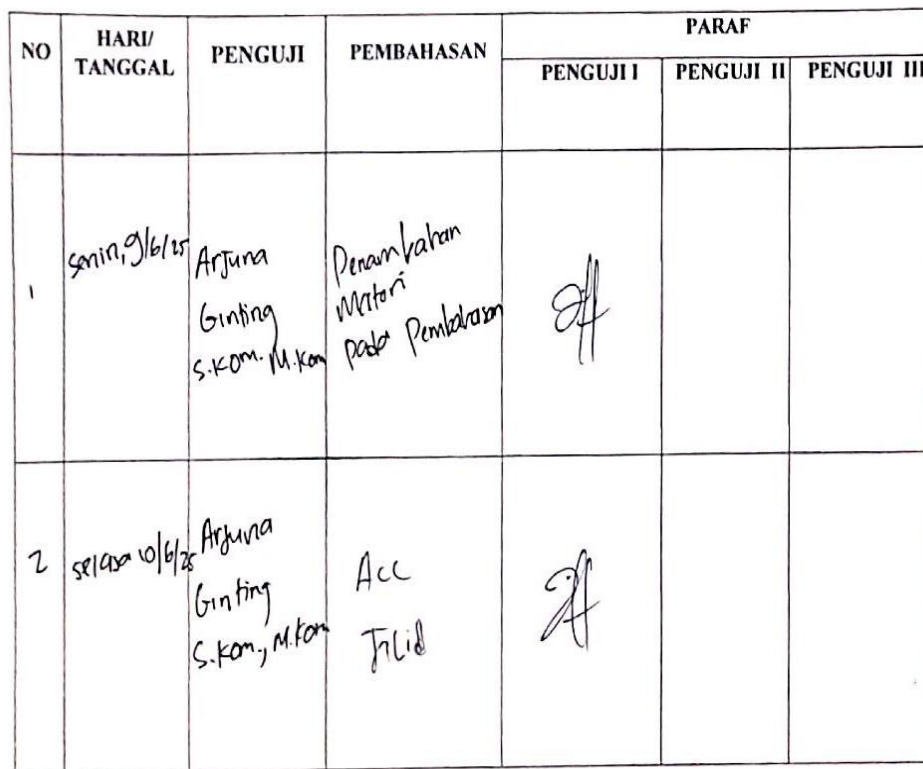 NO
HARI/
TANGGAL
PENGUJI
PEMBAHASAN
PARAF
PENGUJI I
PENGUJI II
PENGUJI III
1
Senin, 9/6/25
Arjuna
Ginting
S.Kom. M.Kom
Penambahan
Materi
pada Pembahasan
2
Selasa 10/6/25
Arjuna
Ginting
S.Kom., M.Kom
Acc
Jilid